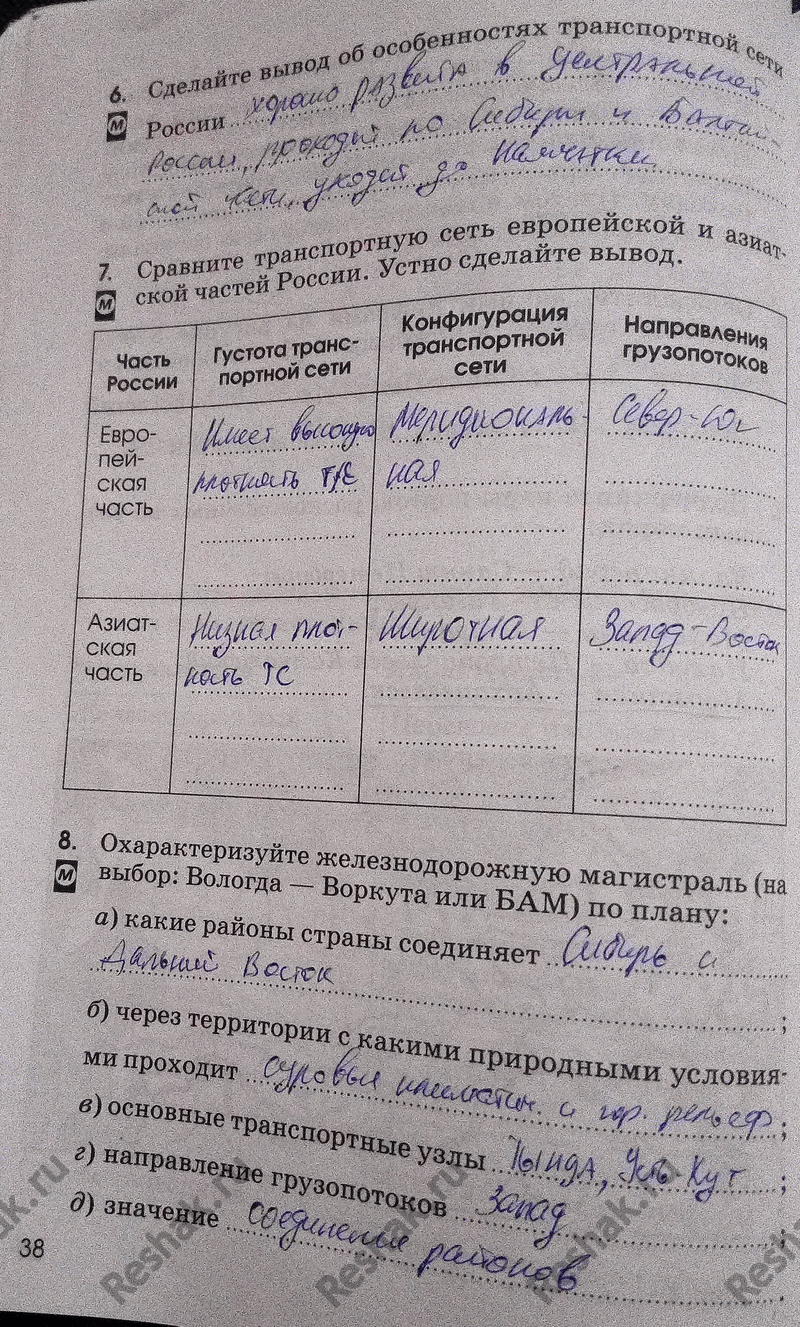 6. Сделайте вывод об особенностях транспортной сети
М России хорошо развита в Центральной
России, проходит по Сибири и
части, уходит до Камчатки
7. Сравните транспортную сеть европейской и азиат-
М ской частей России. Устно сделайте вывод.
Часть России
Густота транс-
портной сети
Конфигурация
транспортной
сети
Направления
грузопотоков
Евро-
пей-
ская
часть
Имеет высокую
плотность Т/С
Меридиональ-
ная
Север-Юг
Азиат-
ская
часть
Низкая плот-
ность ТС
Широтная
Запад-Восток
8. Охарактеризуйте железнодорожную магистраль (на
М выбор: Вологда — Воркута или БАМ) по плану:
а) какие районы страны соединяет Сибирь и
Дальний Восток ;
б) через территории с какими природными условия-
ми проходит суровый климатич. и гор. рельеф ;
в) основные транспортные узлы Тында, Усть-Кут ;
г) направление грузопотоков Запад ;
д) значение соединение районов .
38
Reshak.ru
Reshak.ru
Reshak.ru